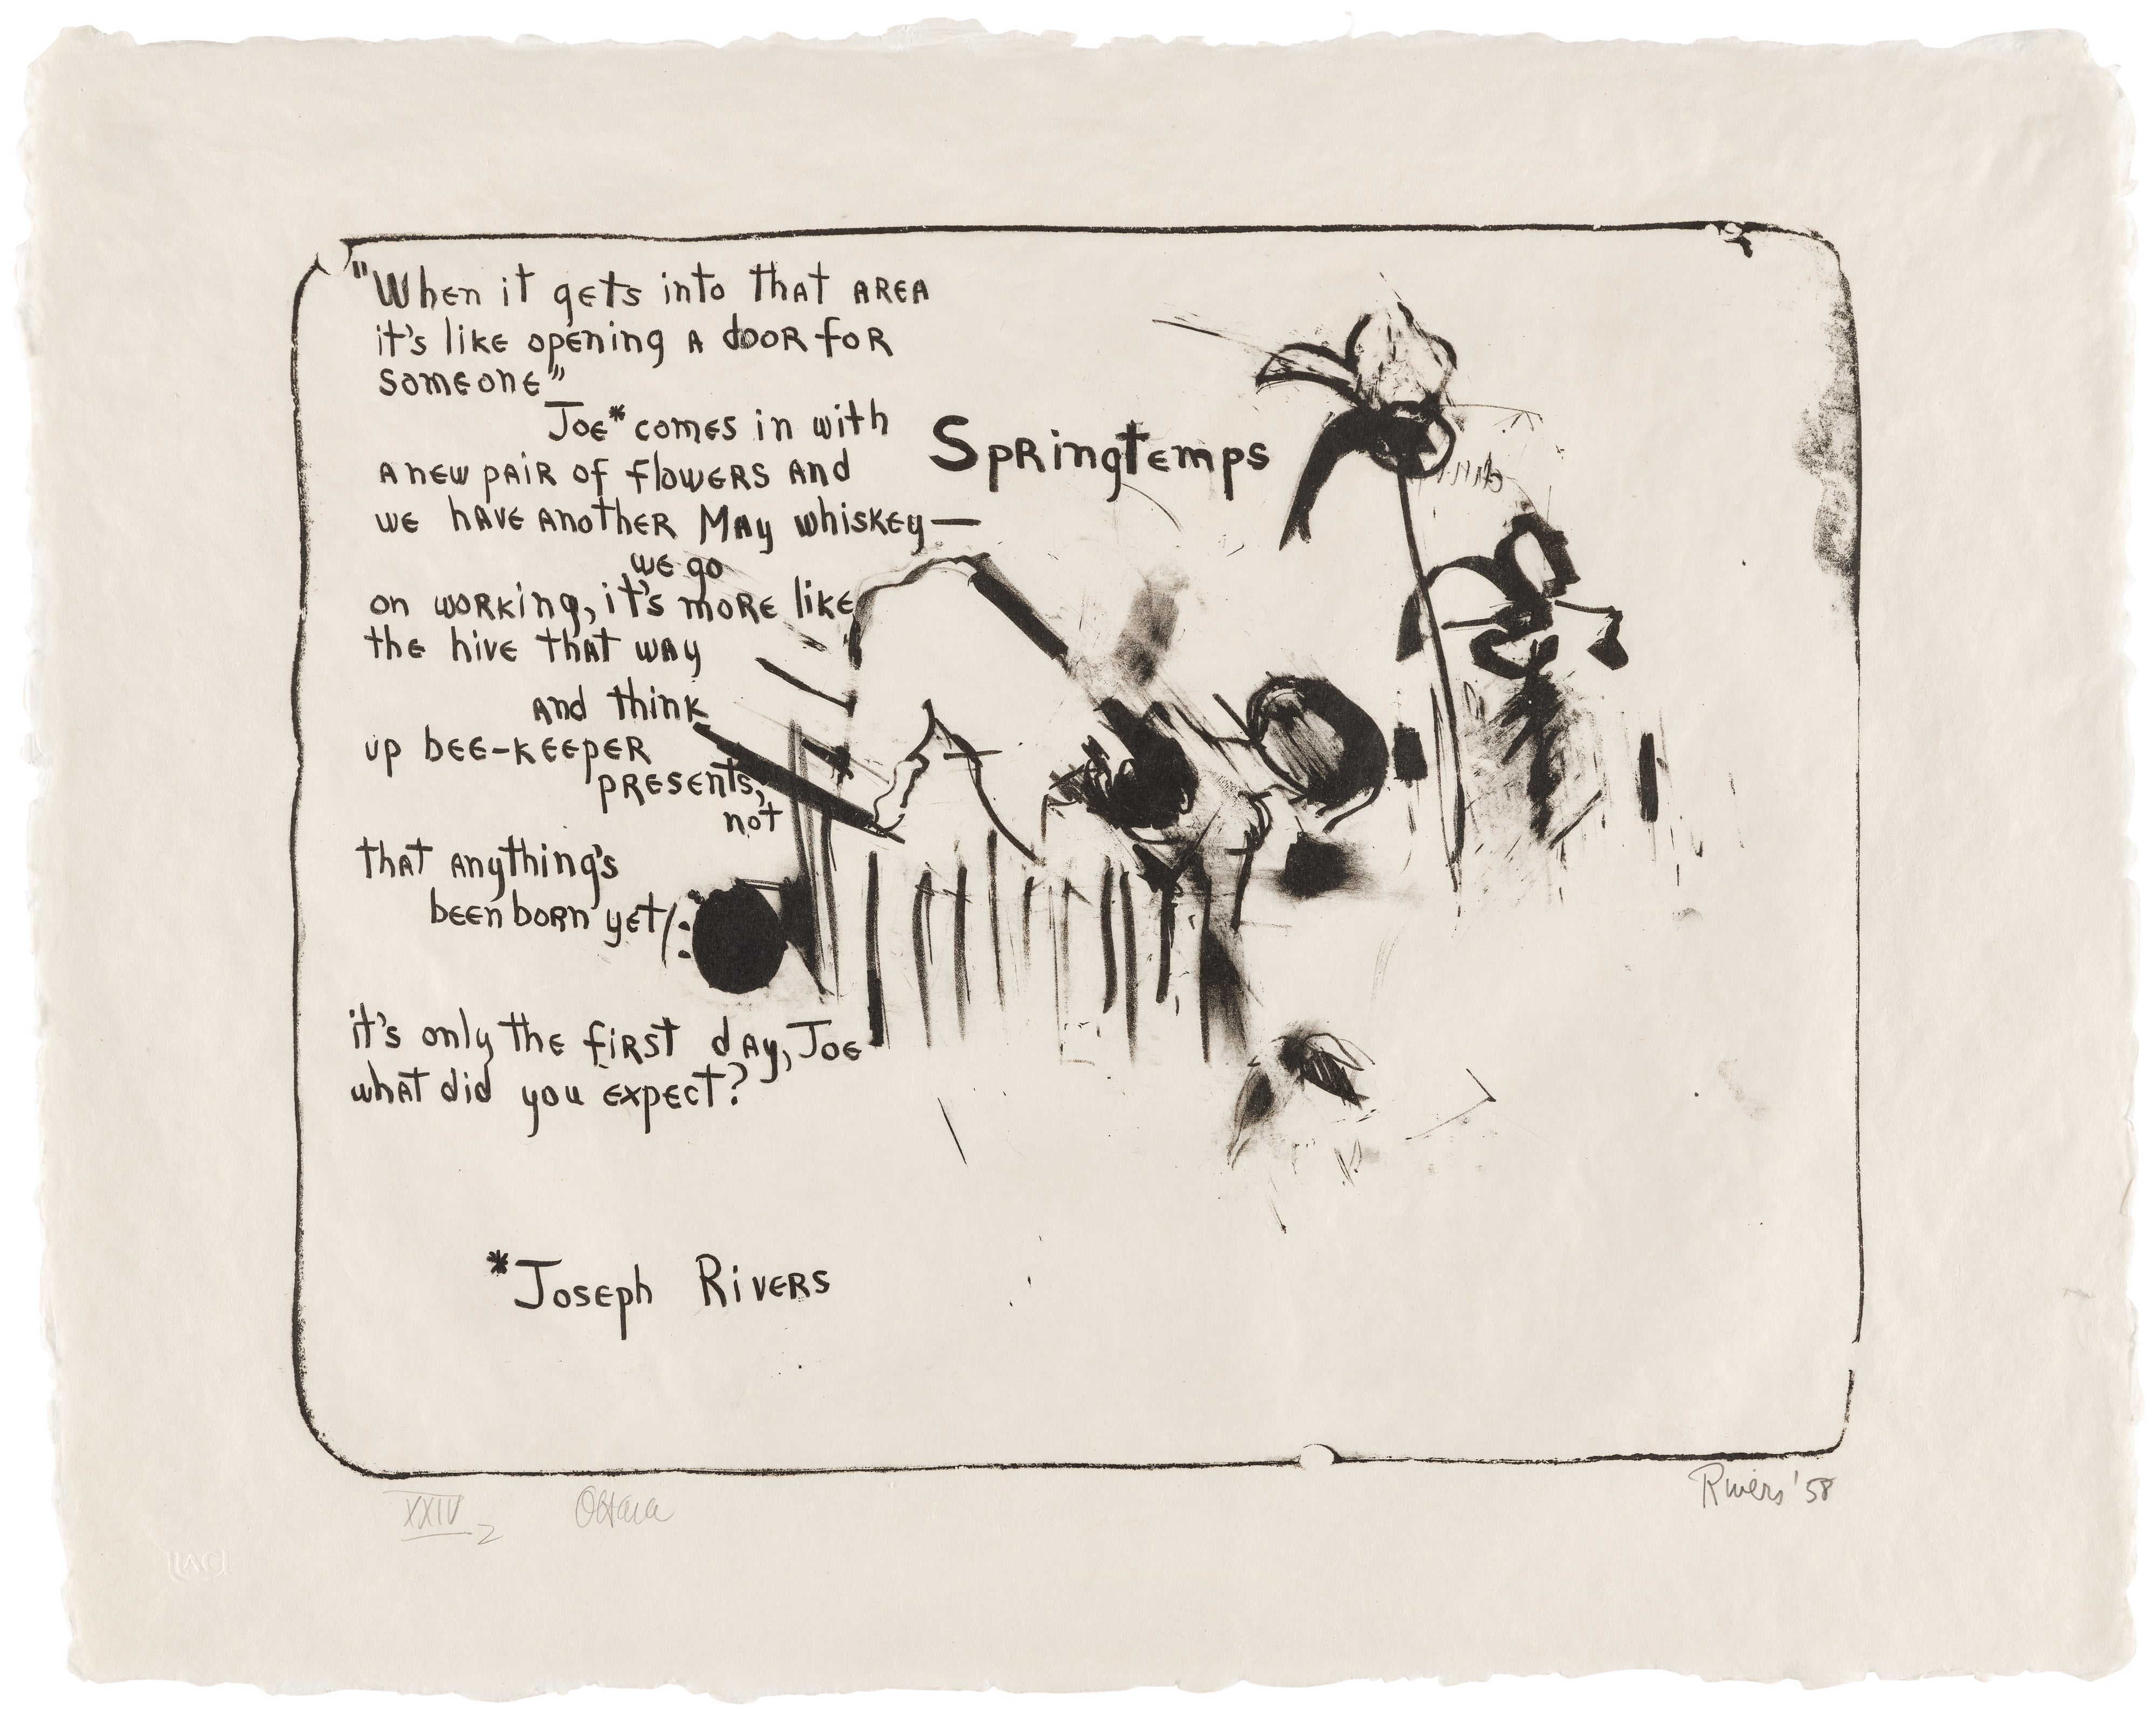 "When it gets into that AREA
it's like opening A door for
someone"
Joe* comes in with
A new pair of flowers And
we have another May whiskey—
we go
on working, it's more like
the hive that way
And think
up bee-keeper
presents,
not
that anything's
been born yet
it's only the first day, Joe
what did you expect?
Springtemps
*Joseph Rivers
XXIV
2
Rivers '58